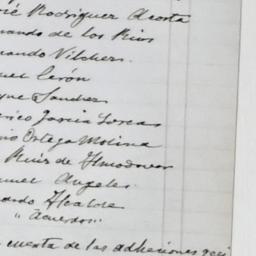 José Rodríguez Acosta
nando de los Ríos
nando Vílchez
uel Cerón
que Sanchez
erico García Lorca
nio Ortega Molina
Ruiz de Almodovar
nuel Angeles
ardo Alcalde
"Acuerdos"
cuenta de las adhesiones reci